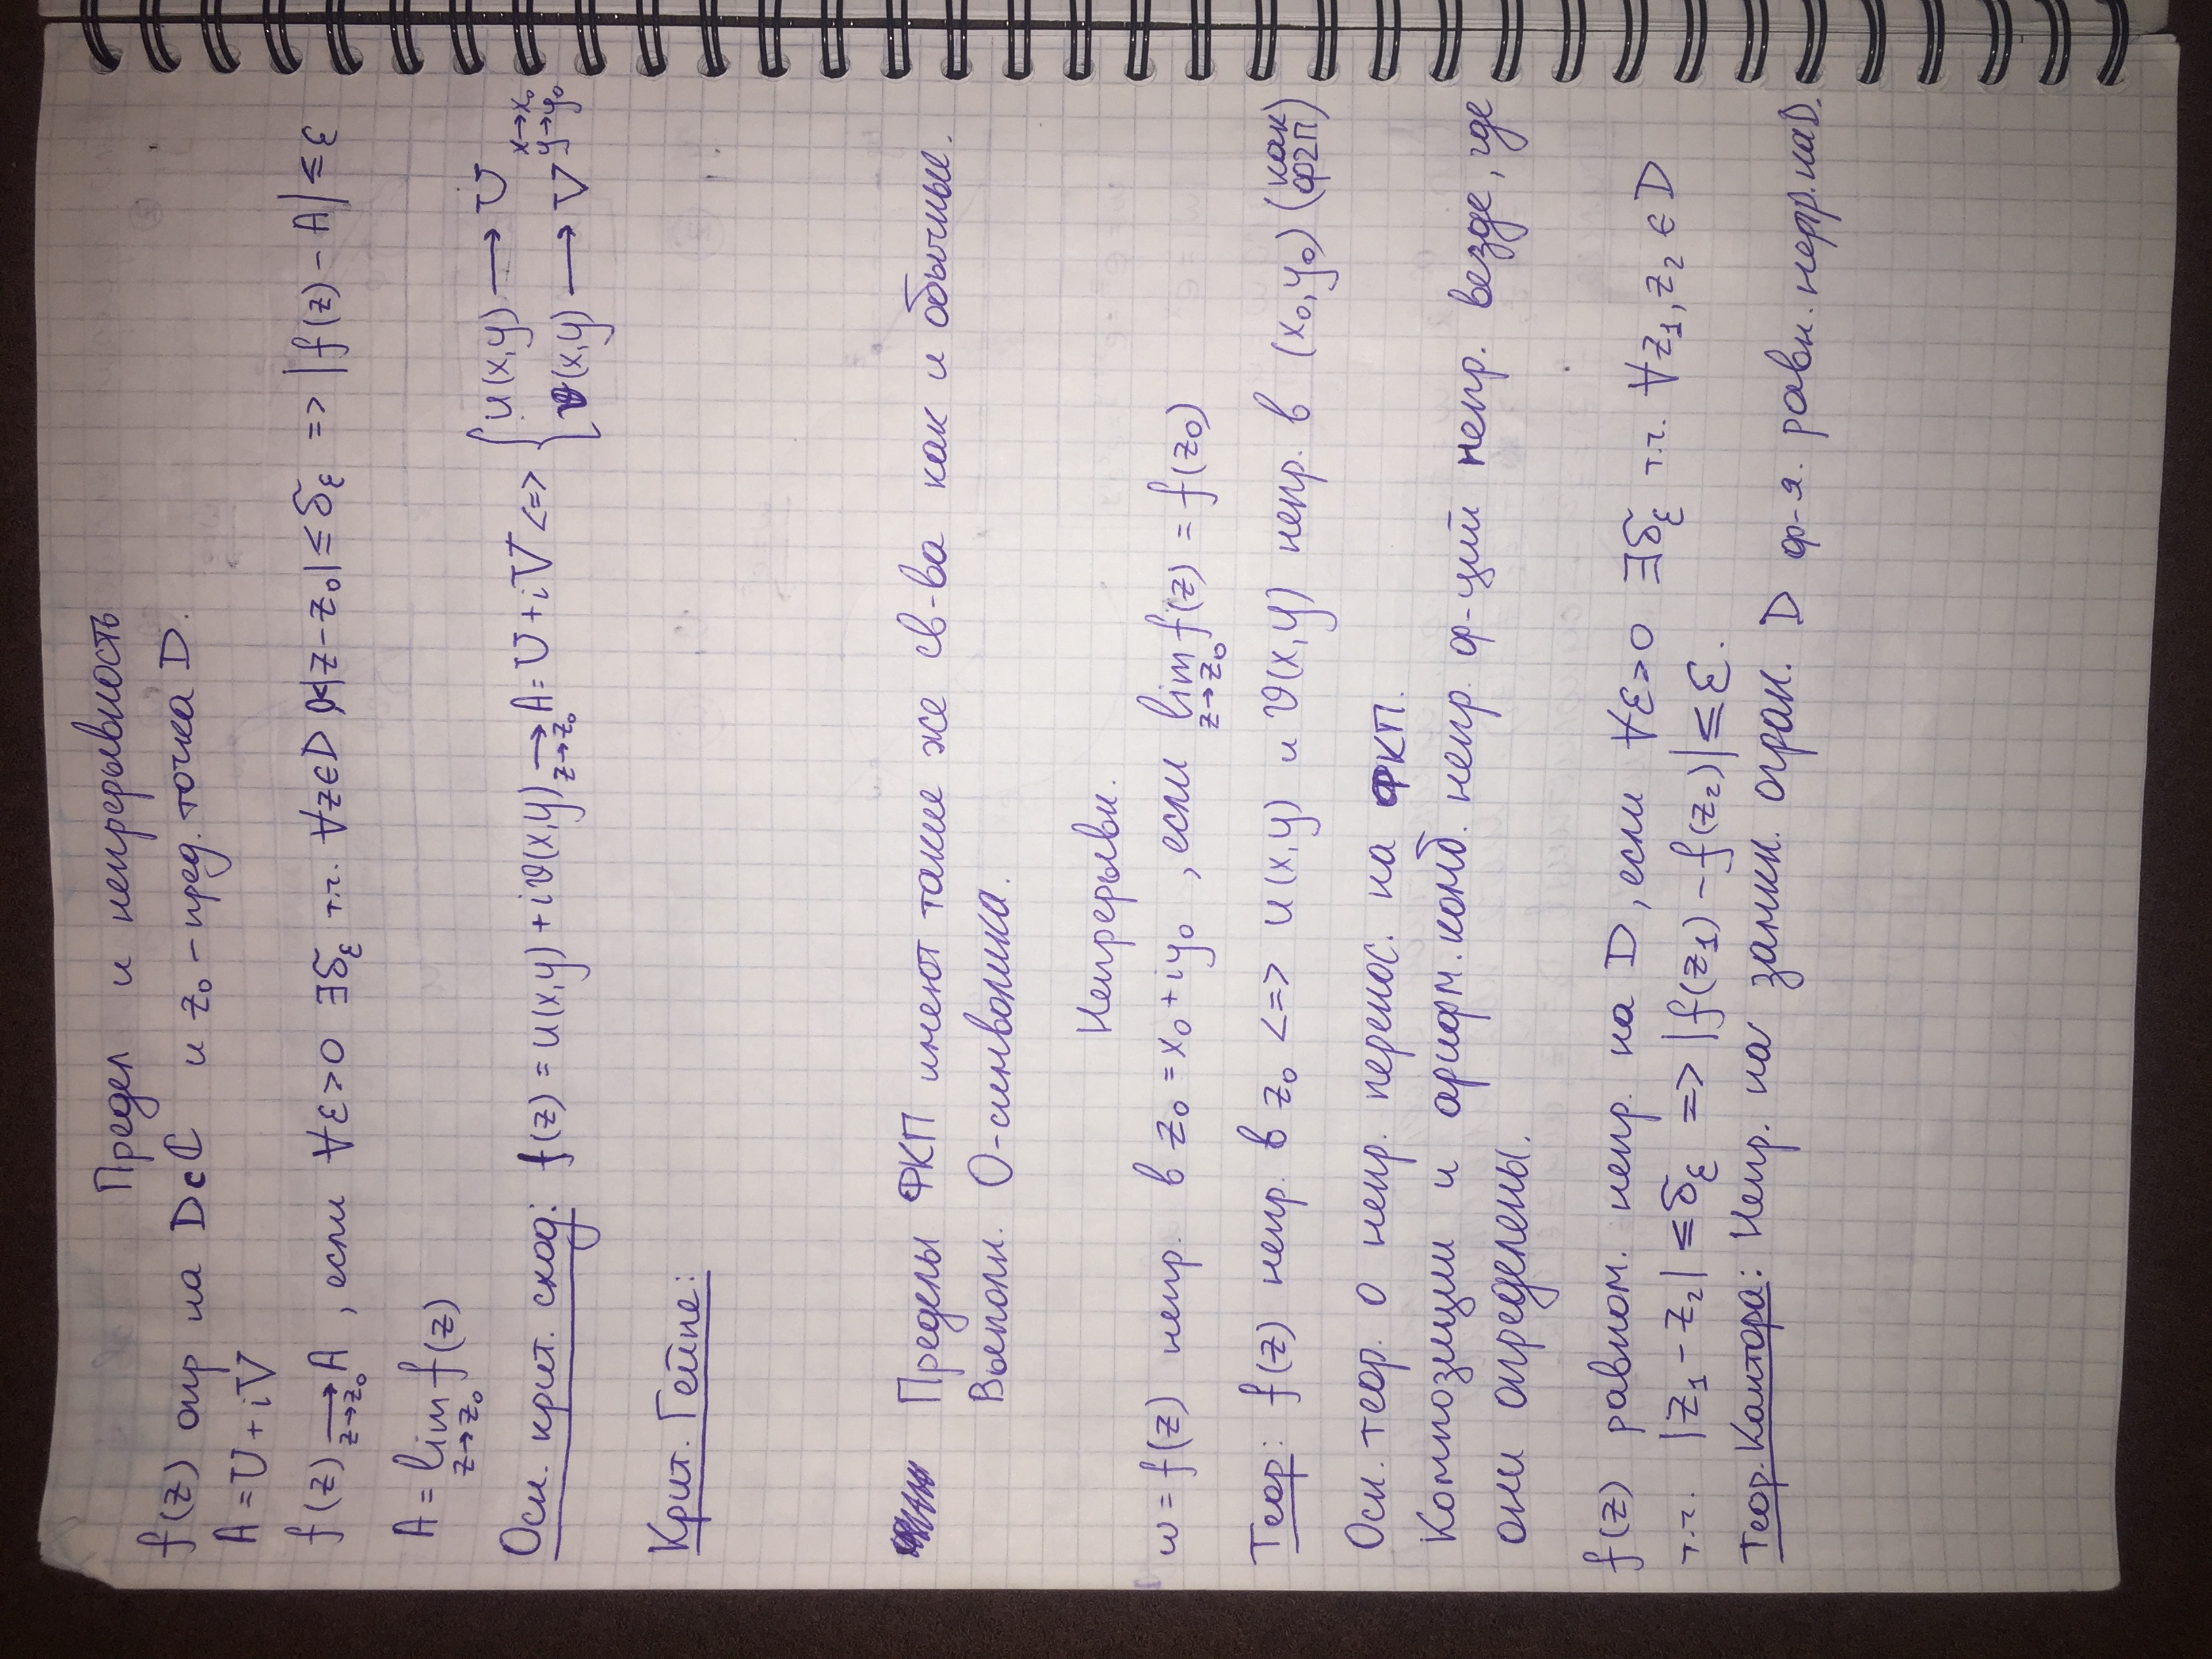 Предел и непрерывность
f(z) опр на D⊂ℂ и z₀ – пред. точка D.
A = U + iV
f(z) ⟶ A, если ∀ε>0 ∃δ_ε т.ч. ∀z∈D 0<|z-z₀| ≤ δ_ε => |f(z) - A| ≤ ε
z→z₀
A = lim f(z)
z→z₀
Осн. крит. сход: f(z) = u(x,y) + iv(x,y) ⟶ A = U + iV <=> { u(x,y) ⟶ U
v(x,y) ⟶ V
z→z₀ x→x₀ y→y₀
Крит. Гейне:
Пределы ФКП имеют такие же св-ва как и обычные.
Выполн. О-символика.
Непрерывн.
w = f(z) непр. в z₀ = x₀ + iy₀, если lim f(z) = f(z₀)
z→z₀
Теор: f(z) непр. в z₀ <=> u(x,y) и v(x,y) непр. в (x₀,y₀) (как ф2п)
Осн. теор. о непр. перенос. на ФКП.
Композиции и арифм. комб. непр. ф-ций непр. везде, где
они определены.
f(z) равном. непр. на D, если ∀ε>0 ∃δ_ε т.ч. ∀z₁, z₂ ∈ D
т.ч. |z₁ - z₂| ≤ δ_ε => |f(z₁) - f(z₂)| ≤ ε.
Теор. Кантора: Непр. на замкн. огран. D ф-я. равн. непр. на D.